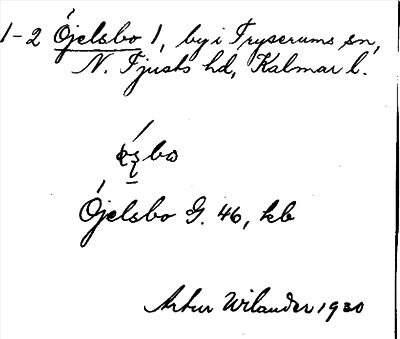 1-2 Ójelsbo 1, by i Tryserums sn,
N. Tjusts hd, Kalmar l.
Ójelsbo G. 46, kb
Artur Wilander 1930